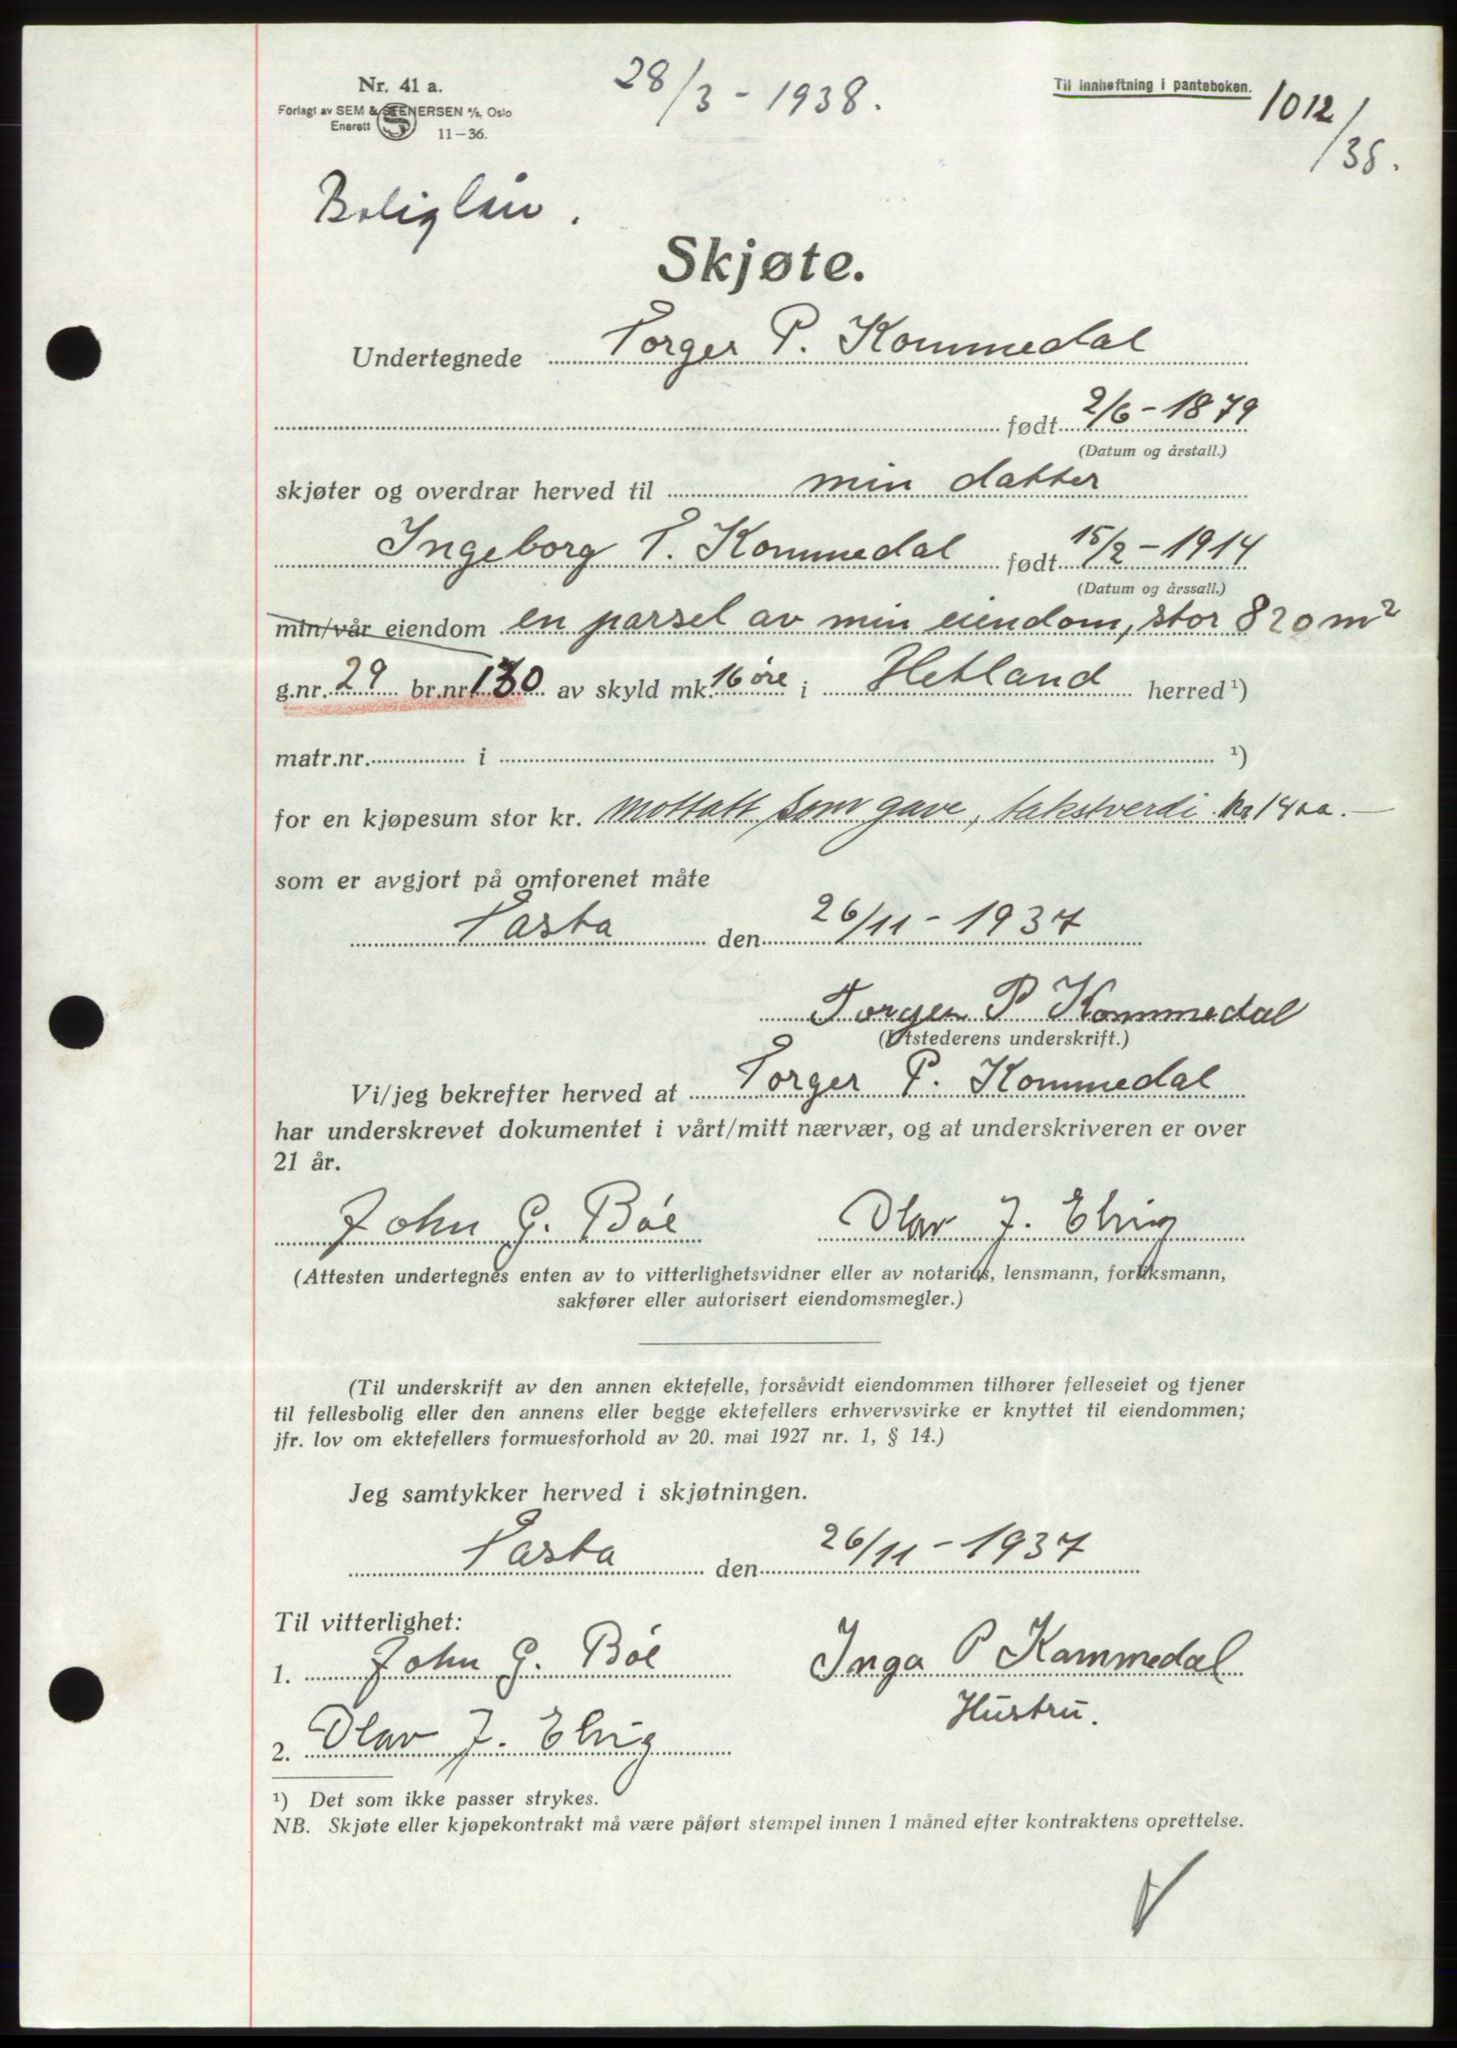 28/3 - 1938.
Nr. 41 a.
Til innheftning i panteboken.
Forlagt av SEM & STENERSEN A/S, Oslo
Enerett 11-36.
1012/38.
Boliglån.
Skjøte.
Undertegnede Torger P. Kommedal
født 2/6 - 1879
(Datum og årstall.)
skjøter og overdrar herved til min datter
Ingeborg T. Kommedal født 15/2 - 1914
(Datum og årssall.)
min/vår eiendom en parsel av min eiendom, stor 820 m²
g.nr. 29 br.nr. 130 av skyld mk. 16 øre i Hetland herred ¹)
matr.nr. i ¹)
for en kjøpesum stor kr. mottatt som gave, takstverdi kr
som er avgjort på omforenet måte
Tasta den 26/11 - 1937
Torger P Kommedal
(Utstederens underskrift.)
Vi/jeg bekrefter herved at Torger P. Kommedal
har underskrevet dokumentet i vårt/mitt nærvær, og at underskriveren er over
21 år.
John G. Bøe Olav J. Elvig
(Attesten undertegnes enten av to vitterlighetsvidner eller av notarius, lensmann, forliksmann,
sakfører eller autorisert eiendomsmegler.)
(Til underskrift av den annen ektefelle, forsåvidt eiendommen tilhører felleseiet og tjener
til fellesbolig eller den annens eller begge ektefellers erhvervsvirke er knyttet til eiendommen;
jfr. lov om ektefellers formuesforhold av 20. mai 1927 nr. 1, § 14.)
Jeg samtykker herved i skjøtningen.
Tasta den 26/11 - 1937
Til vitterlighet:
1. John G. Bøe Inga P Kommedal
Hustru.
2. Olav J. Elvig
¹) Det som ikke passer strykes.
NB. Skjøte eller kjøpekontrakt må være påført stempel innen 1 måned efter kontraktens oprettelse.